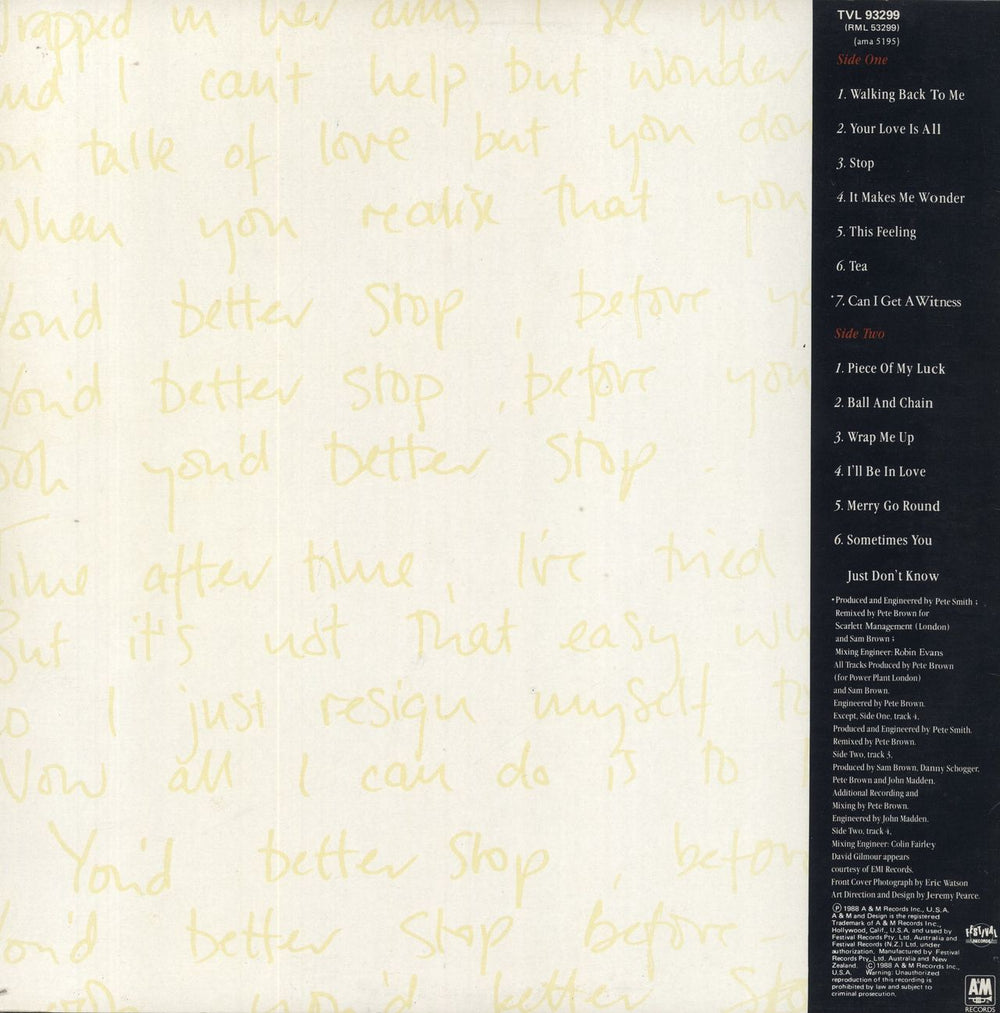 Wrapped in her arms I see you
And I can't help but wonder
talk of love but you don
When you realise that you
You'd better stop, before
You'd better stop, before you
Ooh you'd better stop.
Time after time, I've tried
But it's not that easy
So I just resign myself to
Now all I can do is to
You'd better stop, before
better stop before
you'd better sto
TVL 93299
(RML 53299)
(ama 5195)
Side One
1. Walking Back To Me
2. Your Love Is All
3. Stop
4. It Makes Me Wonder
5. This Feeling
6. Tea
*7. Can I Get A Witness
Side Two
1. Piece Of My Luck
2. Ball And Chain
3. Wrap Me Up
4. I'll Be In Love
5. Merry Go Round
6. Sometimes You
Just Don't Know
*Produced and Engineered by Pete Smith ;
Remixed by Pete Brown for
Scarlett Management (London)
and Sam Brown ;
Mixing Engineer: Robin Evans
All Tracks Produced by Pete Brown
(for Power Plant London)
and Sam Brown.
Engineered by Pete Brown.
Except, Side One, track 4.
Produced and Engineered by Pete Smith.
Remixed by Pete Brown.
Side Two, track 3.
Produced by Sam Brown, Danny Schogger,
Pete Brown and John Madden.
Additional Recording and
Mixing by Pete Brown.
Engineered by John Madden.
Side Two, track 4.
Mixing Engineer: Colin Fairley
David Gilmour appears
courtesy of EMI Records.
Front Cover Photograph by Eric Watson
Art Direction and Design by Jeremy Pearce.
Ⓟ 1988 A & M Records Inc., U.S.A.
A & M and Design is the registered
Trademark of A & M Records Inc.,
Hollywood, Calif., U.S.A. and used by
Festival Records Pty. Ltd. Australia and
Festival Records (N.Z.) Ltd. under
authorization. Manufactured by Festival
Records Pty. Ltd. Australia and New
Zealand. © 1988 A & M Records Inc.,
U.S.A. Warning: Unauthorized
reproduction of this recording is
prohibited by law and subject to
criminal prosecution.
FESTIVAL
RECORDS
A&M
RECORDS